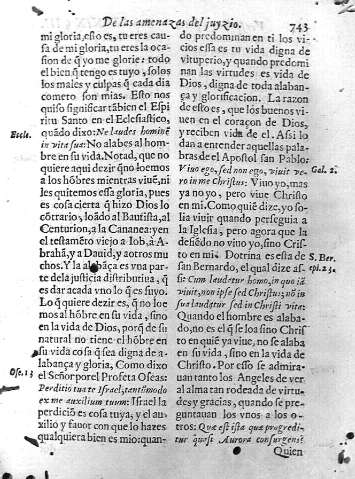 De las amenazas del juyzio.
743
mi gloria, esto es, tu eres cau-
sa de mi gloria, tu eres la oca-
sion de q̃ yo me glorie: todo
el bien q̃ tengo es tuyo, solos
los males y culpas q̃ cada dia
cometo son mias. Esto nos
quiso significar tãbien el Espi
ritu Santo en el Eclesiastico,
Eccle.
quãdo dixo: Ne laudes hominẽ
in vita sua: No alabes al hom-
bre en su vida. Notad, que no
quiere aqui dezir q̃ no loemos
a los hõbres mientras viuẽ, ni
les quitemos essa gloria, pues
es cosa cierta q̃ hizo Dios lo
cõtrario, loãdo al Bautista, al
Centurion, a la Cananea: y en
el testamẽto viejo a Iob, à A-
brahã, y a Dauid, y a otros mu
chos. Y la alabãça es vna par-
te da justicia distributiua, q̃
es dar a cada vno lo q̃ es suyo.
Lo q̃ quiere dezir es, q̃ no loe
mos al hõbre en su vida, sino
en la vida de Dios, porq̃ de su
natural no tiene el hõbre en
su vida cosa q̃ sea digna de a-
labança y gloria, Como dixo
Ose. 13
el Señor por el Profeta Oseas:
Perditio tua te Israel, tantũmodo
ex me auxilium tuum: Israel la
perdiciõ es cosa tuya, y el au-
xilio y fauor con que lo hazes
qualquiera bien es mio: quan-
do predominan en ti los vi-
cios essa es tu vida digna de
vituperio, y quando predomi-
nan las virtudes es vida de
Dios, digna de toda alaban-
ça y glorificacion. La razon
de esto es, que los buenos vi-
uen en el coraçon de Dios,
y reciben vida de el. Assi lo
dan a entender aquellas pala-
bras de el Apostol san Pablo:
Gal. 2.
Viuo ego, sed non ego, viuit ve-
ro in me Christus: Viuo yo, mas
ya no yo, pero viue Christo
en mi. Como quiẽ dize, yo so-
lia viuir quando perseguia a
la Iglesia, pero agora que la
defiẽdo no viuo yo, sino Cris-
to en mi. Dotrina es esta de
S. Ber.
san Bernardo, el qual dize as-
epi. 25.
si: Cum laudatur homo, in quo iã
viuit, non ipse sed Christus: nõ in
sua laudatur sed in Christi vita:
Quando el hombre es alaba-
do, no es el q̃ se loa sino Chris
to en quiẽ ya viue, no se alaba
en su vida, sino en la vida de
Christo. Por esso se admira-
uan tanto los Angeles de ver
al alma tan rodeada de virtu-
des y gracias, quando se pre-
guntauan los vnos a los o-
tros: Quæ est ista quæ progredi-
tur quasi Aurora consurgens?
Quien